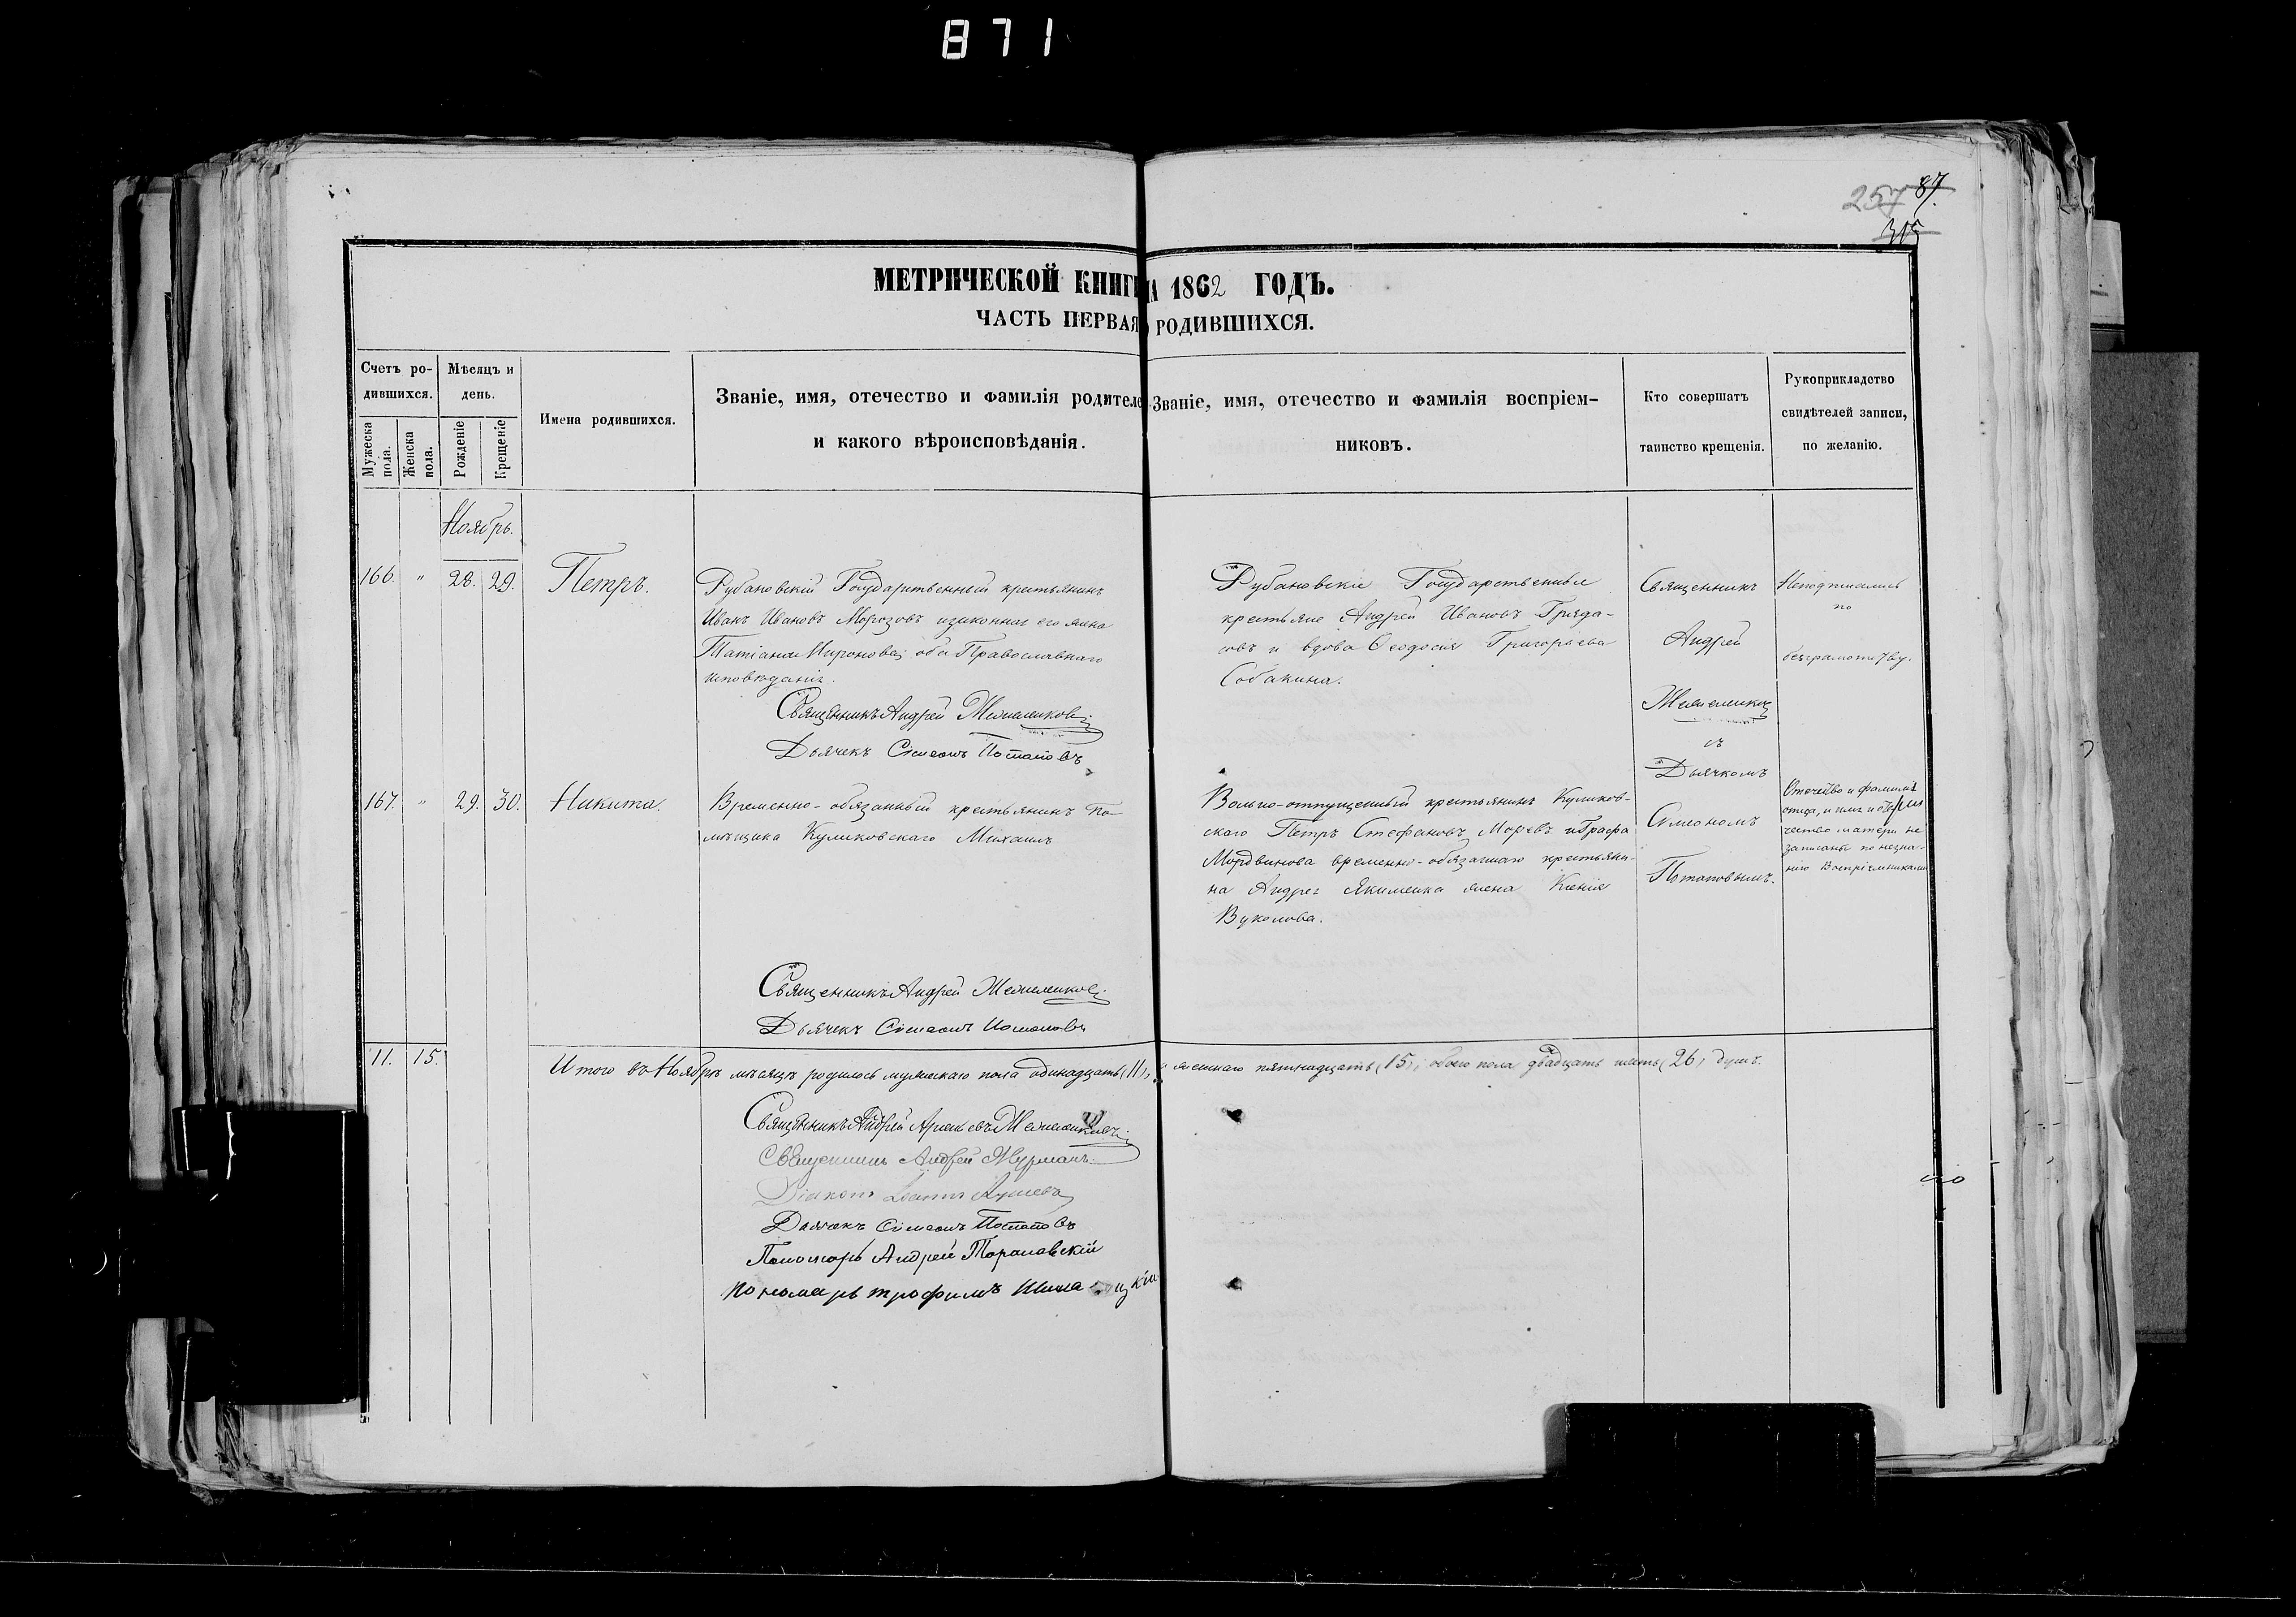 871
257 87.
315
МЕТРИЧЕСКОЙ КНИГИ НА 1862 ГОДЪ.
ЧАСТЬ ПЕРВАЯ РОДИВШИХСЯ.
Счетъ ро-
дившихся.
Мужеска пола.
Женска пола.
Мѣсяцъ и
день.
Рожденіе
Крещеніе
Имена родившихся.
Званіе, имя, отечество и фамилія родителе
и какого вѣроисповѣданія.
Званіе, имя, отечество и фамилія воспріем-
никовъ.
Кто совершатъ
таинство крещенія.
Рукоприкладство
свидѣтелей записи,
по желанію.
Ноябрь.
166. " 28. 29. Петръ.
Рубановскій Государственный крестьянинъ
Иванъ Ивановъ Морозовъ и законная его жена
Татіана Миронова, оба Православнаго
исповѣданія.
Священникъ Андрей
Дьячекъ Симеонъ Потаповъ
Рубановскіе Государственные
крестьяне Андрей Ивановъ Гряда-
совъ и вдова Ѳеодосія Григорьева
Собакина.
Священникъ
Андрей
съ
Дьячкомъ
Симеономъ
Потаповымъ.
Неподписались
по
безграмотству.
167. " 29. 30. Никита.
Временно-обязанный крестьянинъ По-
мѣщика Куликовскаго Михаилъ
Священникъ Андрей
Дьячекъ Симеонъ Потаповъ
Вольно-отпущенный крестьянинъ Куликов-
скаго Петръ Стефановъ Моревъ и Графа
Мордвинова временно-обязаннаго крестьяни-
на Андрея Якименка жена Ксенія
Вуколова.
Отчество и фамилія
отца, и имя и отче-
чество матери не
записаны по незна-
нію Воспріемниками
11. 15.
Итого въ Ноябрѣ мѣсяцѣ родилось мужескаго пола одинадцать (11), женскаго пятнадцать (15), обоего пола двадцать шесть (26) душъ.
Священникъ Андрей
Священникъ Андрей
Діаконъ
Дьячекъ Симеонъ Потаповъ
Пономарь Андрей Торановскій
Пономарь трофимъ